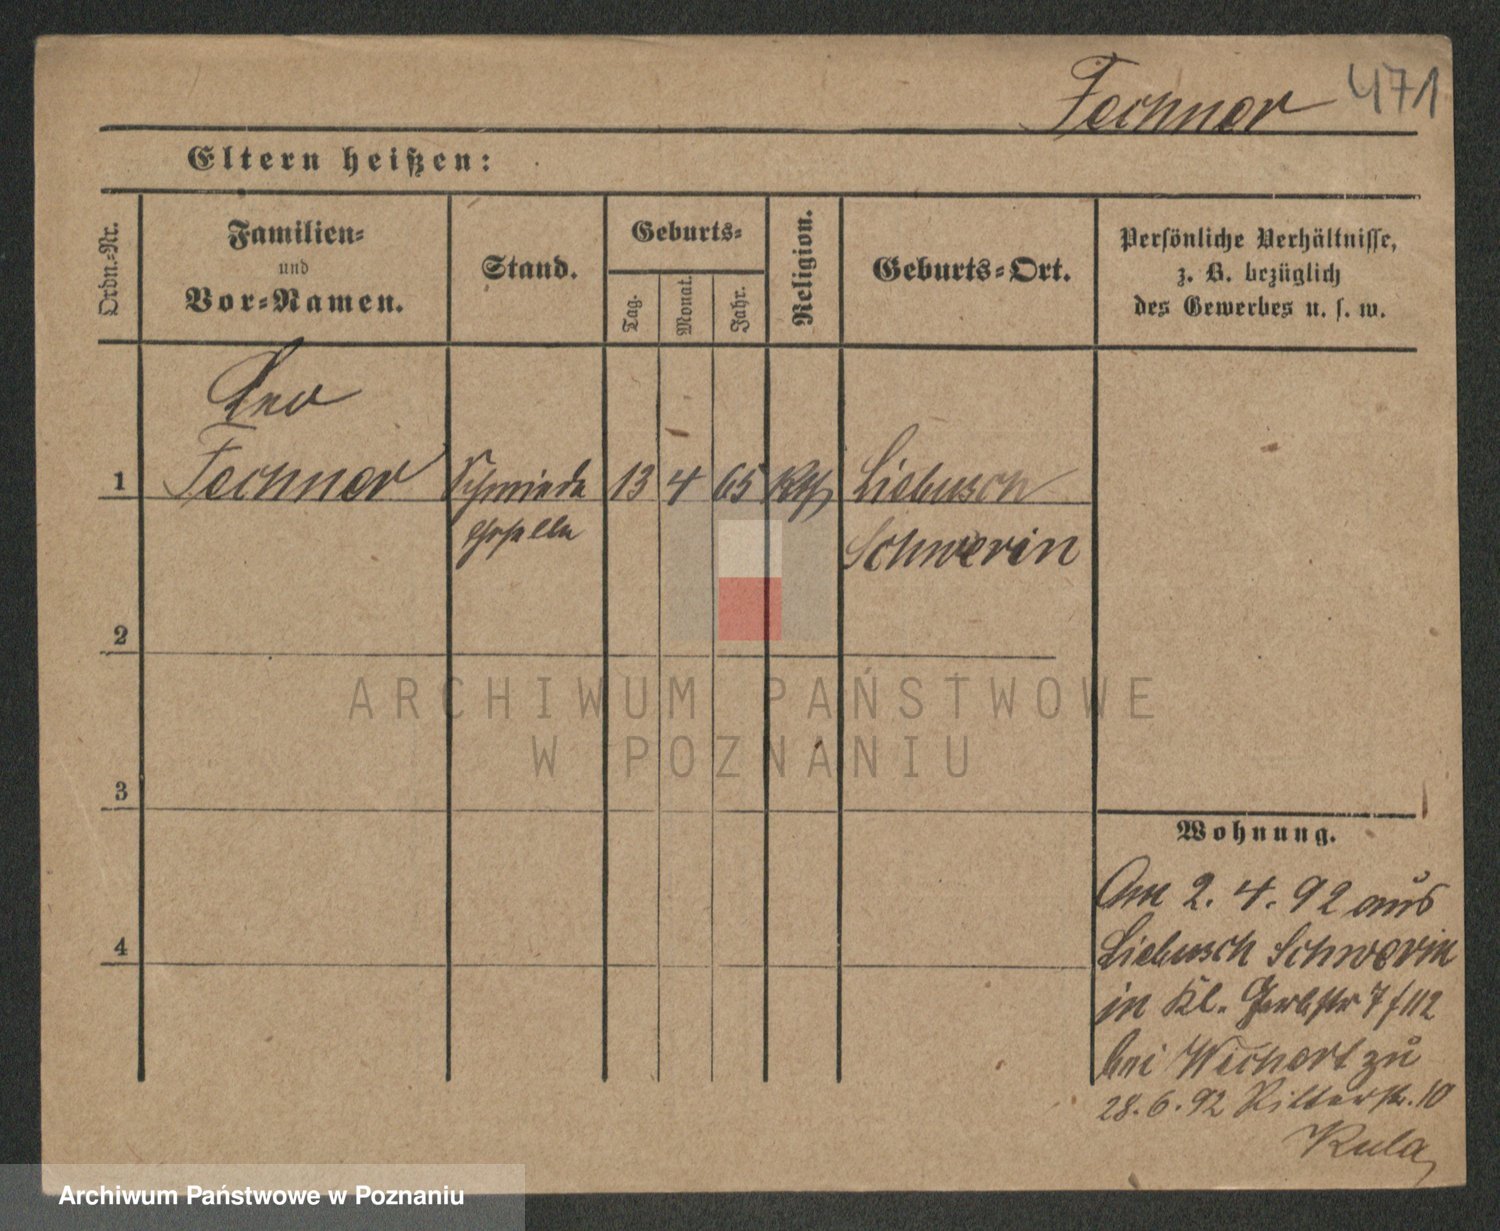 Fechner 471
Eltern heißen:
Ordn.-Nr.
Familien-
und
Vor-Namen.
Stand.
Geburts-
Tag.
Monat.
Jahr.
Religion.
Geburts-Ort.
Persönliche Verhältnisse,
z. B. bezüglich
des Gewerbes u. s. w.
Leo
1 Fechner Schmiede 13 4 65 Kth Liebusch
geselle Schwerin
2
3
4
ARCHIWUM PAŃSTWOWE
W POZNANIU
Wohnung.
Am 2. 4. 92 aus
Liebusch Schwerin
in Kl. Gerbstr 7 f 112
bei Wechert zu
28. 6. 92 Ritterstr. 10
Kula
Archiwum Państwowe w Poznaniu